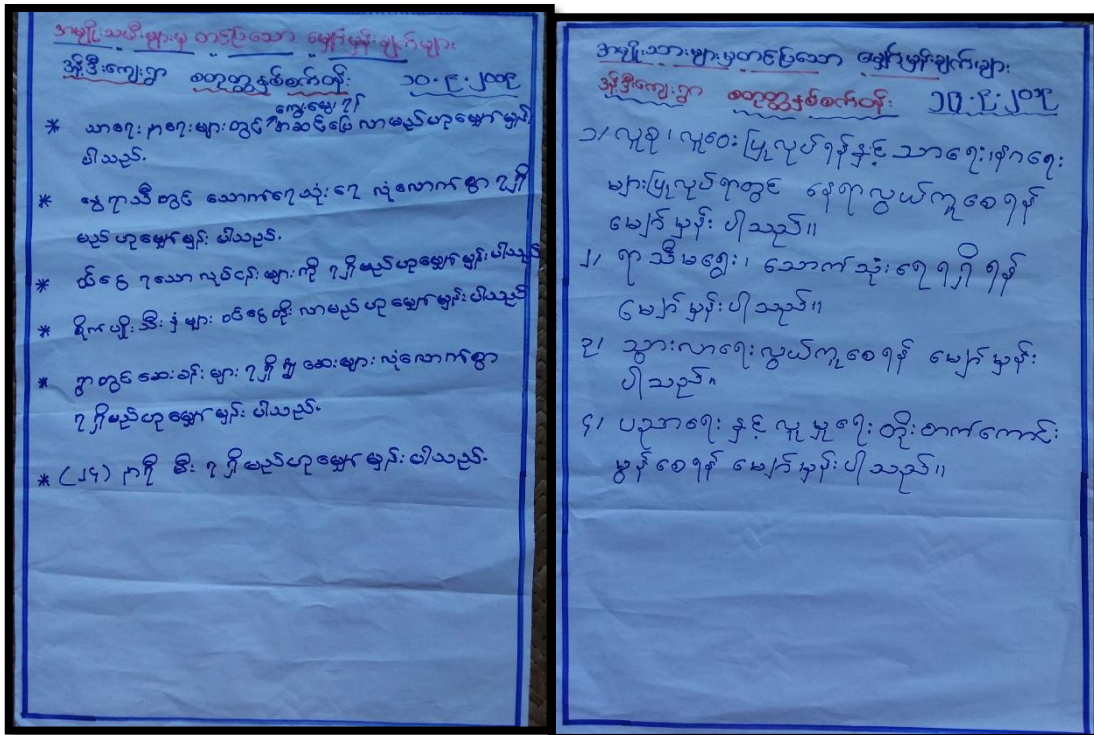 အမျိုးသမီးများမှ တင်ပြသော မျှော်မှန်းချက်များ
အိုင်ဒီးကျေးရွာ စတုတ္ထနှစ်စက်တန်း ၁၀.၉.၂၀၁၉
ကျွေးမွေးရန်
* သာရေး နာရေးများတွင် အဆင်ပြေ လာမည်ဟုမျှော်မှန်း
ပါသည်.
* နွေရာသီတွင် သောက်ရေသုံးရေ လုံလောက်စွာ ရရှိ
မည် ဟုမျှော်မှန်း ပါသည်.
* ဝင်ငွေ ရသော လုပ်ငန်းများကို ရရှိမည်ဟုမျှော်မှန်းပါသည်
* စိုက်ပျိုးသီးနှံများ ဝင်ငွေတိုး လာမည်ဟု မျှော်မှန်းပါသည်
* ရွာတွင် ဆေးခန်းများ ရရှိ၍ ဆေးများ လုံလောက်စွာ
ရရှိမည်ဟုမျှော်မှန်း ပါသည်.
* (၂၄) နာရီ မီး ရရှိမည်ဟုမျှော်မှန်းပါသည်.
အမျိုးသားများမှတင်ပြသော မျှော်မှန်းချက်များ
ကျေးရွာ စတုတ္ထနှစ်စက်တန်း ၁၀.၉.၂၀၁၉
၁/ လူစု၊ လူဝေး ပြုလုပ်ရန်နှင့် သာရေး၊နာရေး
များပြုလုပ်ရာတွင် နေရာလွယ်ကူစေရန်
မျှော်မှန်းပါသည်။
၂/ ရာသီမရွေး၊ သောက်သုံးရေရရှိရန်
မျှော်မှန်းပါသည်။
၃/ သွားလာရေးလွယ်ကူစေရန် မျှော်မှန်း
ပါသည်။
၄/ ပညာရေး နှင့် လူမှုရေး တိုးတက်ကောင်း
မွန်စေရန် မျှော်မှန်းပါသည်။